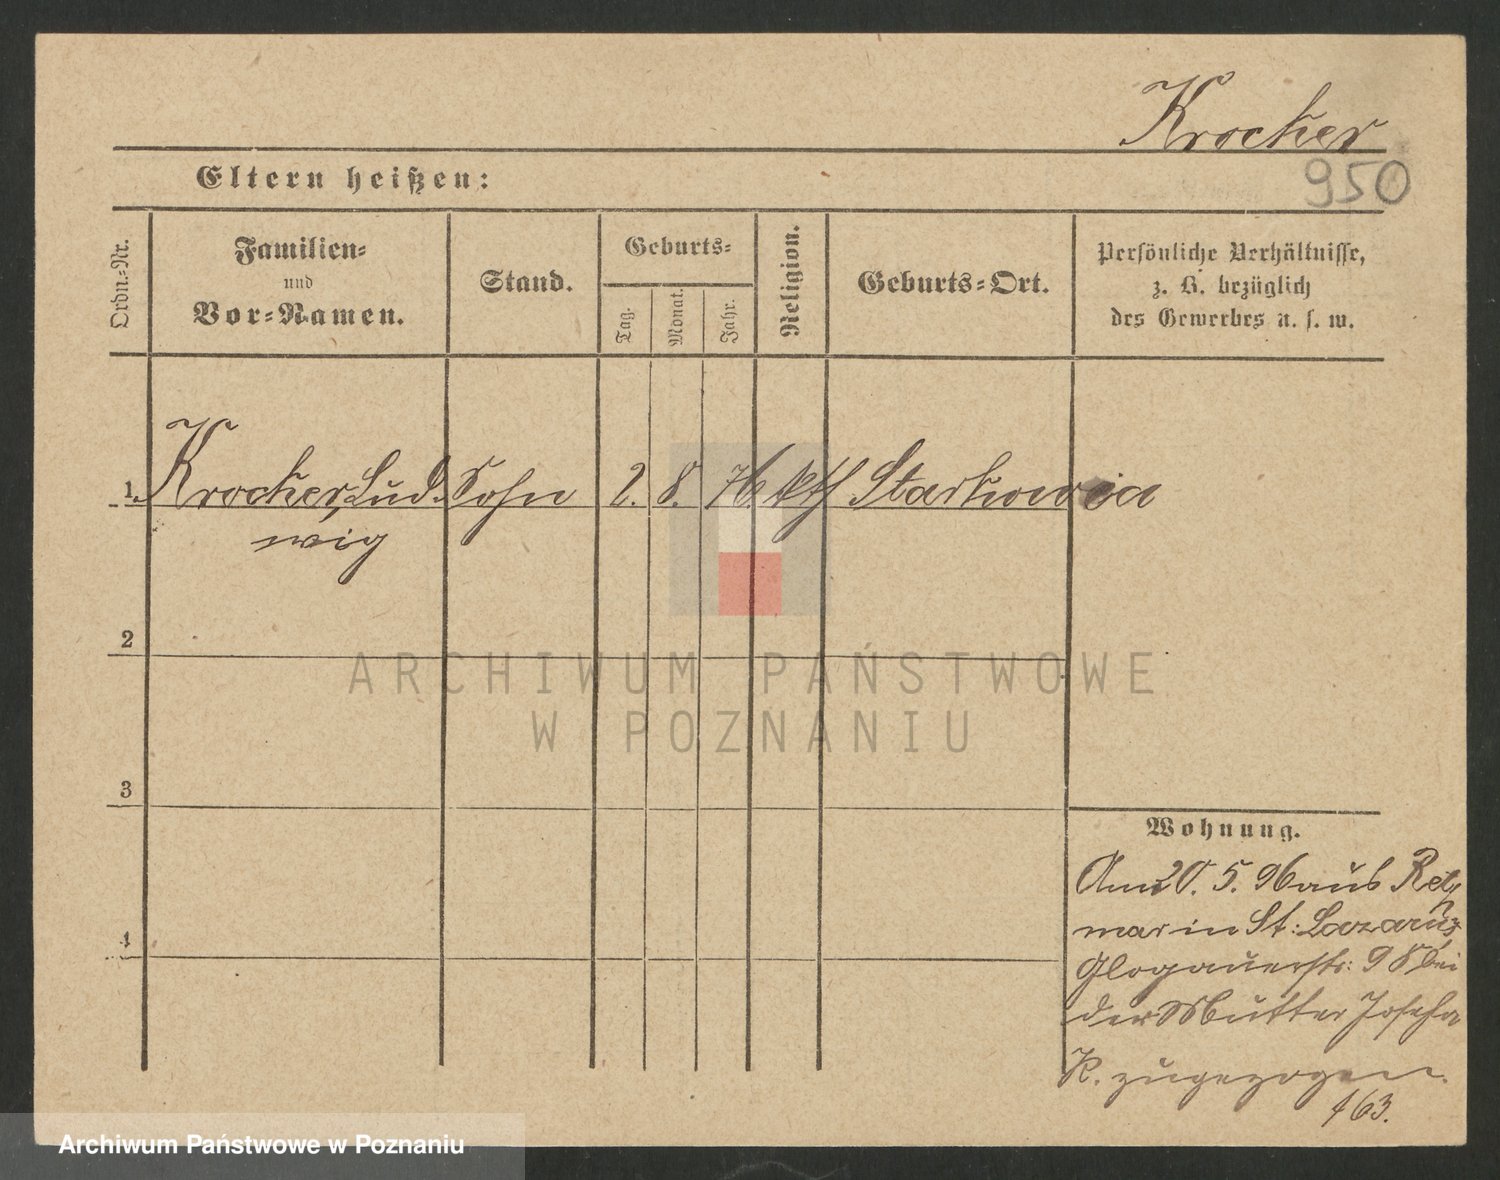 Krocher
950
Eltern heißen:
Ordn.-Nr.
Familien-
und
Vor-Namen.
Stand.
Geburts-
Tag.
Monat.
Jahr.
Religion.
Geburts-Ort.
Persönliche Verhältnisse,
z. B. bezüglich
des Gewerbes u. s. w.
1. Krocher, Lud- Sohn 2. 8. 76. kth Starkowia
wig
2
3
4
Wohnung.
Am 20. 5. 96 aus Retz
mar in St: Lazarus
Glogauerstr: 98 bei
der Mutter Josefa
K. zugezogen.
463.
ARCHIWUM PAŃSTWOWE
W POZNANIU
Archiwum Państwowe w Poznaniu